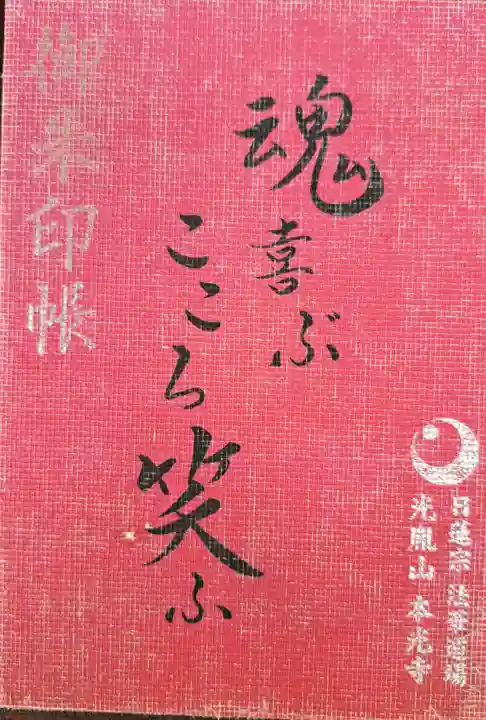 魂
喜ぶ
こころ
笑ふ
御朱印帳
日蓮宗 法華道場
光胤山 本光寺